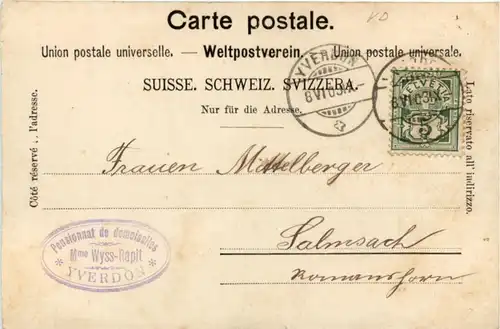 Carte postale.
VD
Union postale universelle. — Weltpostverein. — Union postale universale.
SUISSE. SCHWEIZ. SVIZZERA.
Nur für die Adresse.
Côté réservé à l'adresse.
Lato riservato all' indirizzo.
YVERDON
8 VI 03
HELVETIA
8 VI 03
Frauen Mittelberger
Pensionnat de demoiselles
Mme Wyss-Rapit
YVERDON
Salmsach
Romanshorn